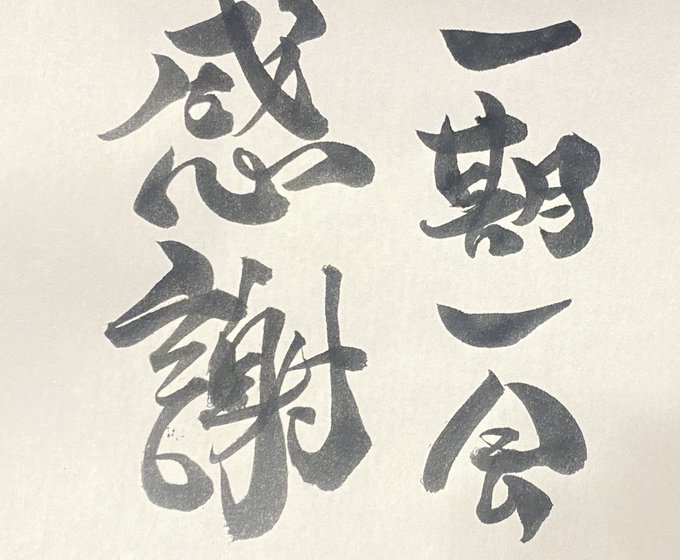 一期一会
感謝